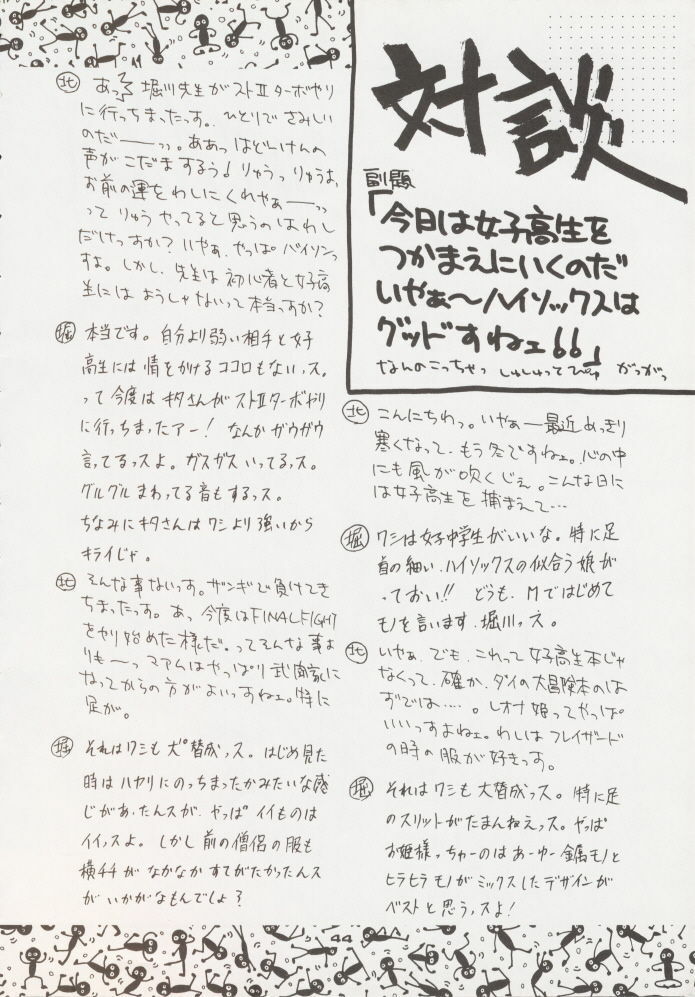 対談
副題
「今日は女子高生を
つかまえにいくのだ
いやぁ〜ハイソックスは
グッドすねェ66」
なんのこっちゃっ しゅしゅってぴゅ がっがっ
北 こんにちわっ。いやぁー最近めっきり
寒くなって、もう冬ですねェ。心の中
にも風が吹くじぇ。こんな日に
は女子高生を捕まえて…
堀 ワシは女子中学生がいいな。特に足
首の細い、ハイソックスの似合う娘が
っておい!! どうも、Mではじめて
モノを言います、堀川っス。
北 いやぁ、でも、これって女子高生本じゃ
なくって、確か、ダイの大冒険本のは
ずでは…‥。レオナ姫ってやっぱ
いいっすよねェ。わしはフレイザード
の時の服が好きっす。
堀 それはワシも大賛成っス。特に足
のスリットがたまんねえっス。やっぱ
お姫様っちゃーのはあーゆー金属モノと
ヒラヒラモノがミックスしたデザインが
ベストと思うっスよ!
北 あっ 堀川先生がストⅡターボやり
に行っちまったっす。ひとりでさみしい
のだーーッ。ああっはどーけんの
声がこだまするう! りゅうっりゅうよ
お前の運をわしにくれやぁーーッ
ってりゅうやってると思うのはわし
だけっすか? いやぁ、やっぱバイソンっ
すよ。しかし、先生は初心者と女子高
生にはようしゃないって本当っすか?
堀 本当です。自分より弱い相手と女子
高生には情をかけるココロもないっス。
って今度はキタさんがストⅡターボやり
に行っちまったアー! なんかガウガウ
言ってるっスよ。ガスガスいってるっス。
グルグルまわってる音もするっス。
ちなみにキタさんはワシより強いから
キライじゃ。
北 そんな事ないっす。ザンギで負けてき
ちまったっす。あっ今度はFINALFIGHT
をやり始めた様だ。ってそんな事よ
りも〜っマァムはやっぱり武闘家に
なってからの方がよいっすねェ。特に
足が。
堀 それはワシも大賛成っス。はじめ見た
時はハヤリにのっちまったかみたいな感
じがあったんスが、やっぱイイものは
イイっスよ。しかし前の僧侶の服も
横チチがなかなかすてがたかったんス
がいかがなもんでしょ?
44